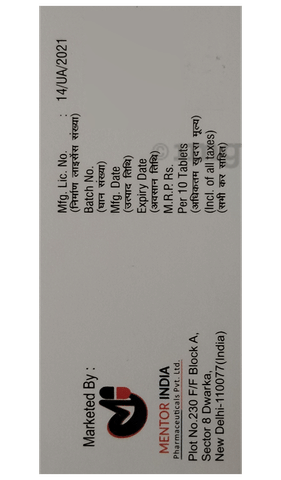 Marketed By :
MENTOR INDIA
Pharmaceuticals Pvt. Ltd.
Plot No.230 F/F Block A,
Sector 8 Dwarka,
New Delhi-110077(India)
Mfg. Lic. No. : 14/UA/2021
(निर्माण लाइसेंस संख्या)
Batch No.
(घान संख्या)
Mfg. Date
(उत्पाद तिथि)
Expiry Date
(अवसान तिथि)
M.R.P. Rs.
Per 10 Tablets
(अधिकतम खुदरा मूल्य)
(Incl. of all taxes)
(सभी कर सहित)